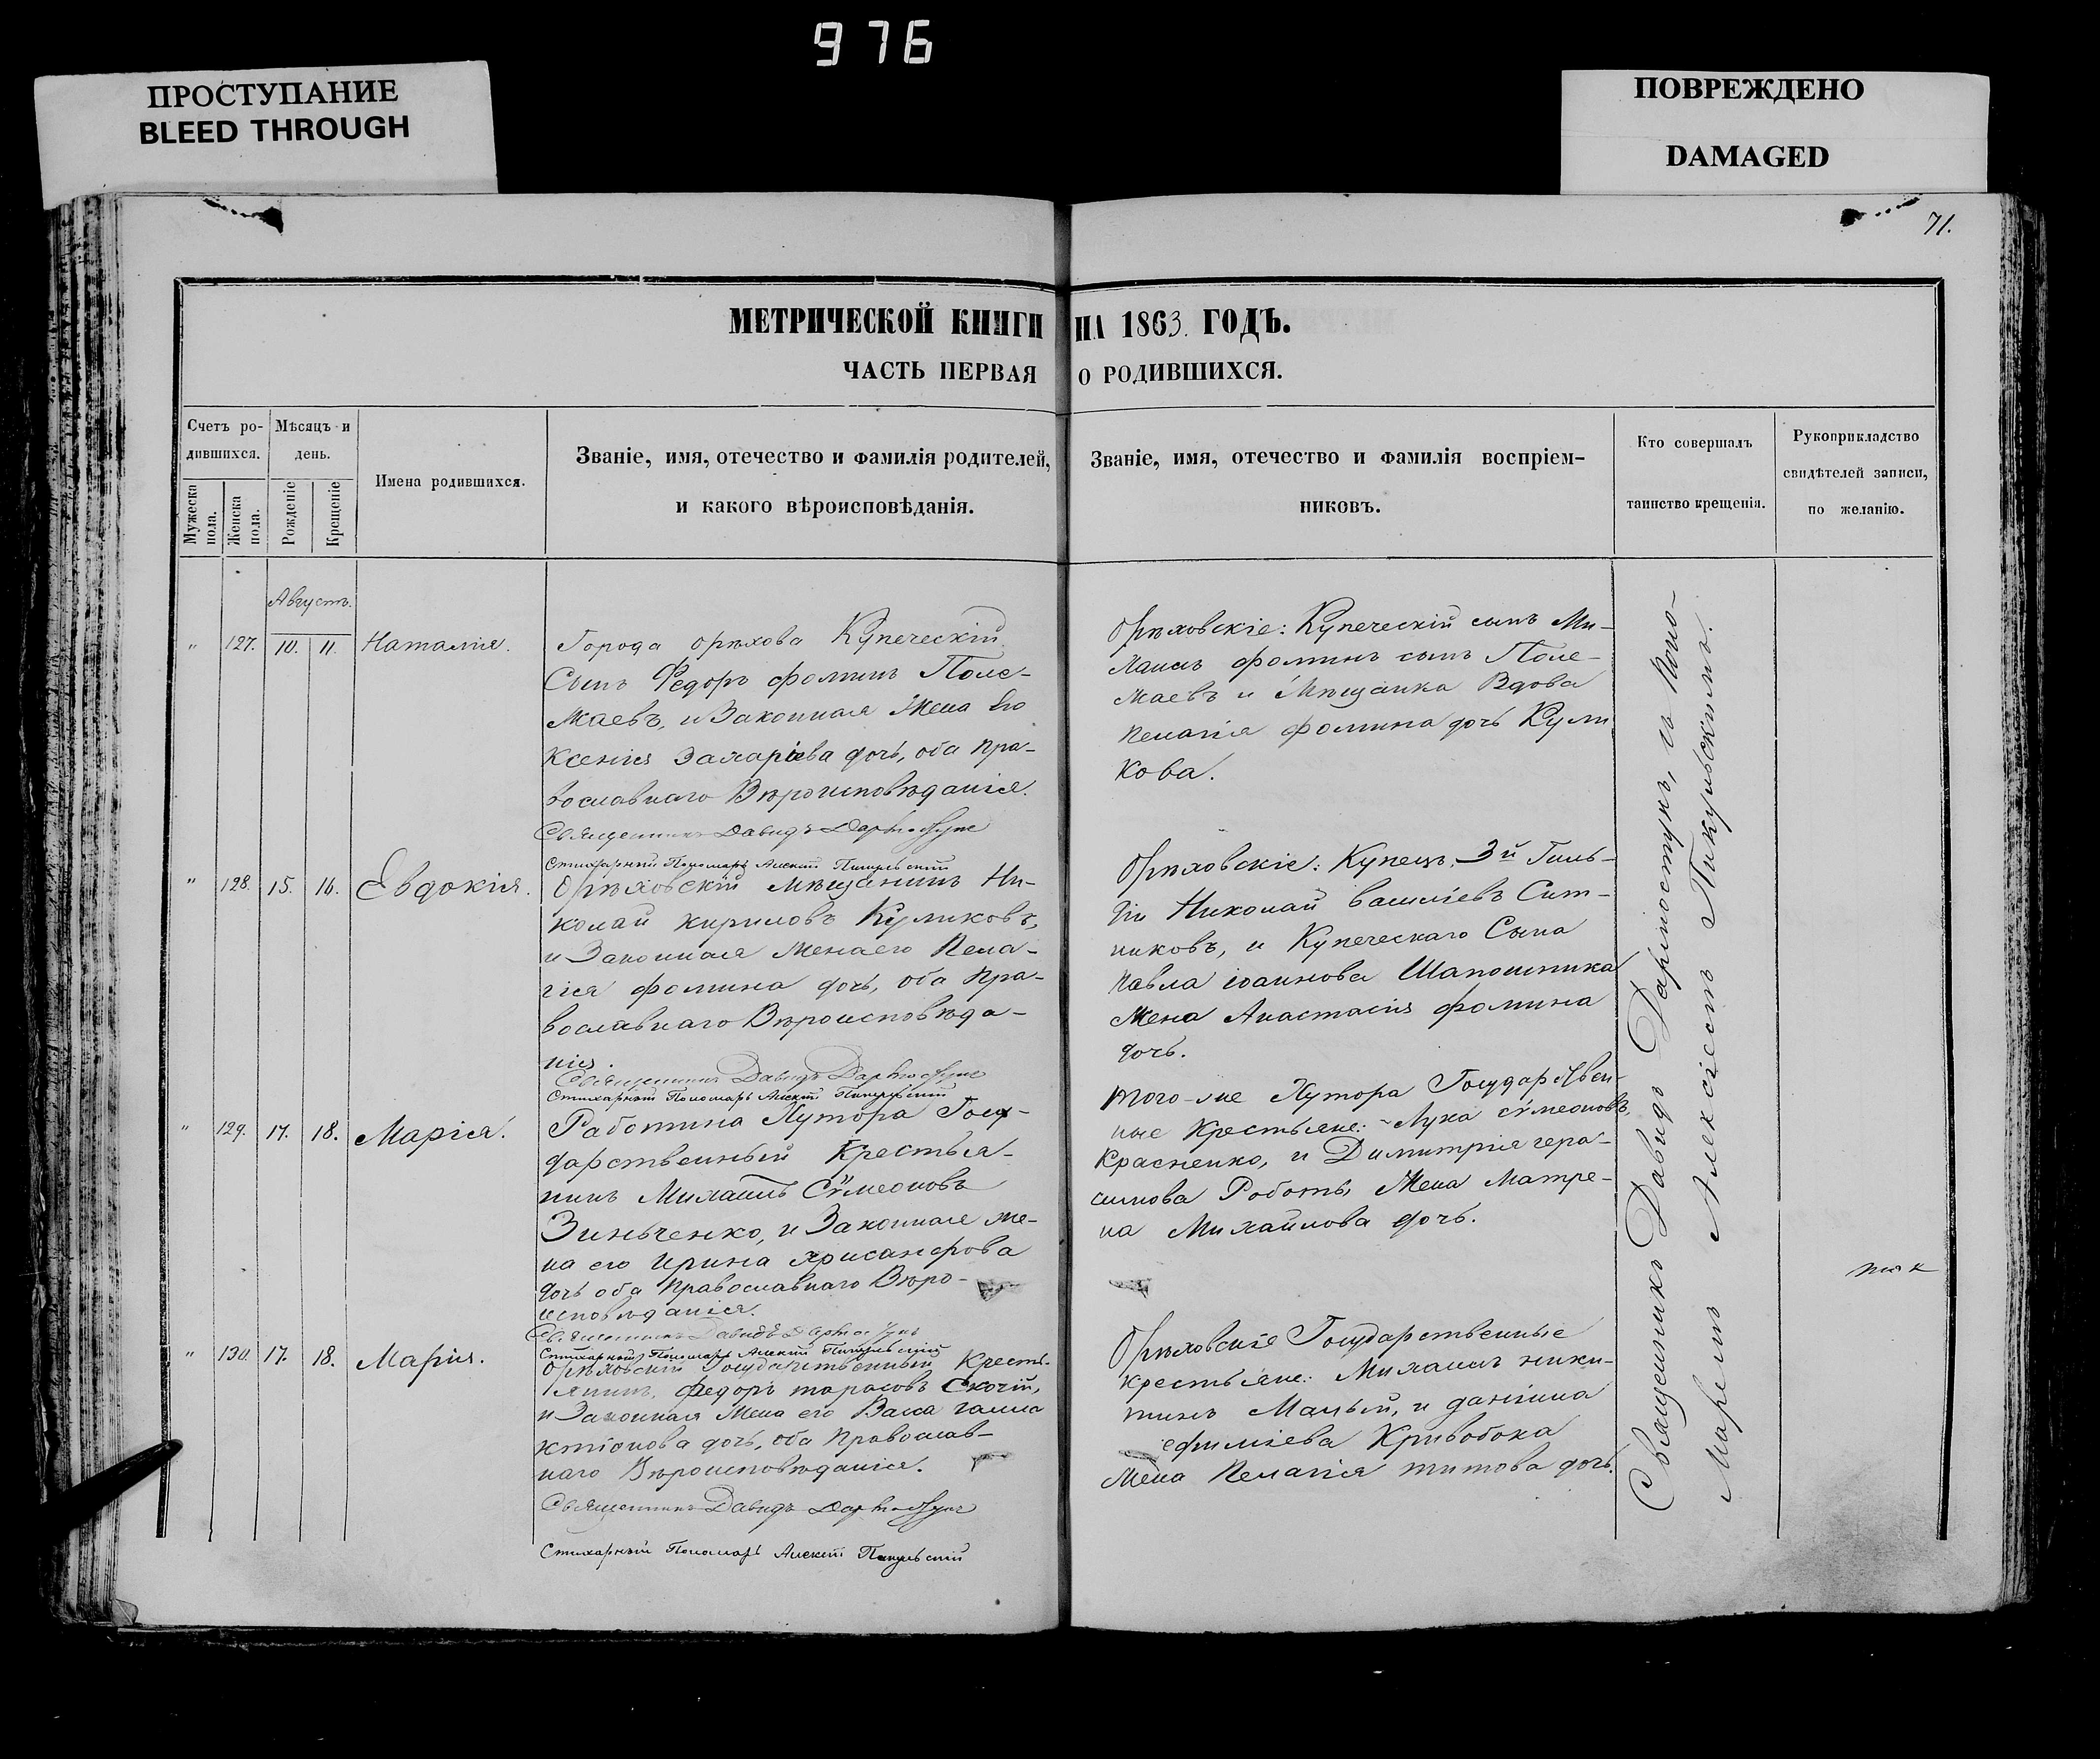 976
ПРОСТУПАНИЕ
BLEED THROUGH
ПОВРЕЖДЕНО
DAMAGED
71.
МЕТРИЧЕСКОЙ КНИГИ НА 1863. ГОДЪ.
ЧАСТЬ ПЕРВАЯ О РОДИВШИХСЯ.
Счетъ ро-
дившихся.
Мужеска
пола.
Женска
пола.
Мѣсяцъ и
день.
Рожденіе
Крещеніе
Имена родившихся.
Званіе, имя, отечество и фамилія родителей,
и какого вѣроисповѣданія.
Званіе, имя, отечество и фамилія воспріем-
никовъ.
Кто совершалъ
таинство крещенія.
Рукоприкладство
свидѣтелей записи,
по желанію.
Августъ.
" 127. 10. 11. Наталія.
Города орѣхова Купеческій
Сынъ Федоръ фоминъ Поле-
жаевъ, и Законная Жена Его
Ксенія Захаріева дочь, оба пра-
вославнаго Вѣроисповѣданія.
Священникъ Давидъ
Стихарный Пономарь Алексій Пикульскій
Орѣховскіе: Купеческій сынъ Ми-
хаилъ фоминъ сынъ Поле-
жаевъ и Мѣщанка Вдова
Пелагія фомина дочь Кули
кова.
" 128. 15. 16. Евдокія.
Орѣховскій мѣщанинъ Ни-
колай кириловъ Куликовъ,
и Законная Жена его Пела-
гія фомина дочь, оба пра-
вославнаго Вѣроисповѣда-
нія.
Священникъ Давидъ
Стихарный Пономарь Алексій Пикульскій
Орѣховскіе: Купецъ 3й Гиль-
діи Николай василіевъ Сит-
никовъ, и Купеческаго Сына
Павла іоаннова Шапошника
Жена Анастасія фомина
дочь.
" 129. 17. 18. Марія.
Работина Хутора Госу-
дарственный Крестья-
нинъ Михаилъ Сѵмеоновъ
Зиньченко, и Законная же-
на его ирина хрисанфова
дочь оба Православнаго Вѣро-
исповѣданія.
Священникъ Давидъ
Стихарный Пономарь Алексій Пикульскій
того-же Хутора Государствен-
ные Крестьяне: Лука сѵмеоновъ
Красненко, и Димитрія гера-
симова Роботы Жена Матре-
на Михаилова дочь.
" 130. 17. 18. Марія.
Орѣховскій Государственный Кресть-
янинъ, Федоръ тарасовъ Скочій,
и Законная Жена его Васса галла
ктіонова дочь, оба Православ-
наго Вѣроисповѣданія.
Священникъ Давидъ
Стихарный Пономарь Алексій Пикульскій
Орѣховскіе Государственные
крестьяне: Михаилъ ники-
тинъ Малый, и даніила
ефиміева Кривобока
Жена Пелагія титова дочь.
Священникъ Давидъ и Поно-
маремъ Алексіемъ Пикульскимъ.